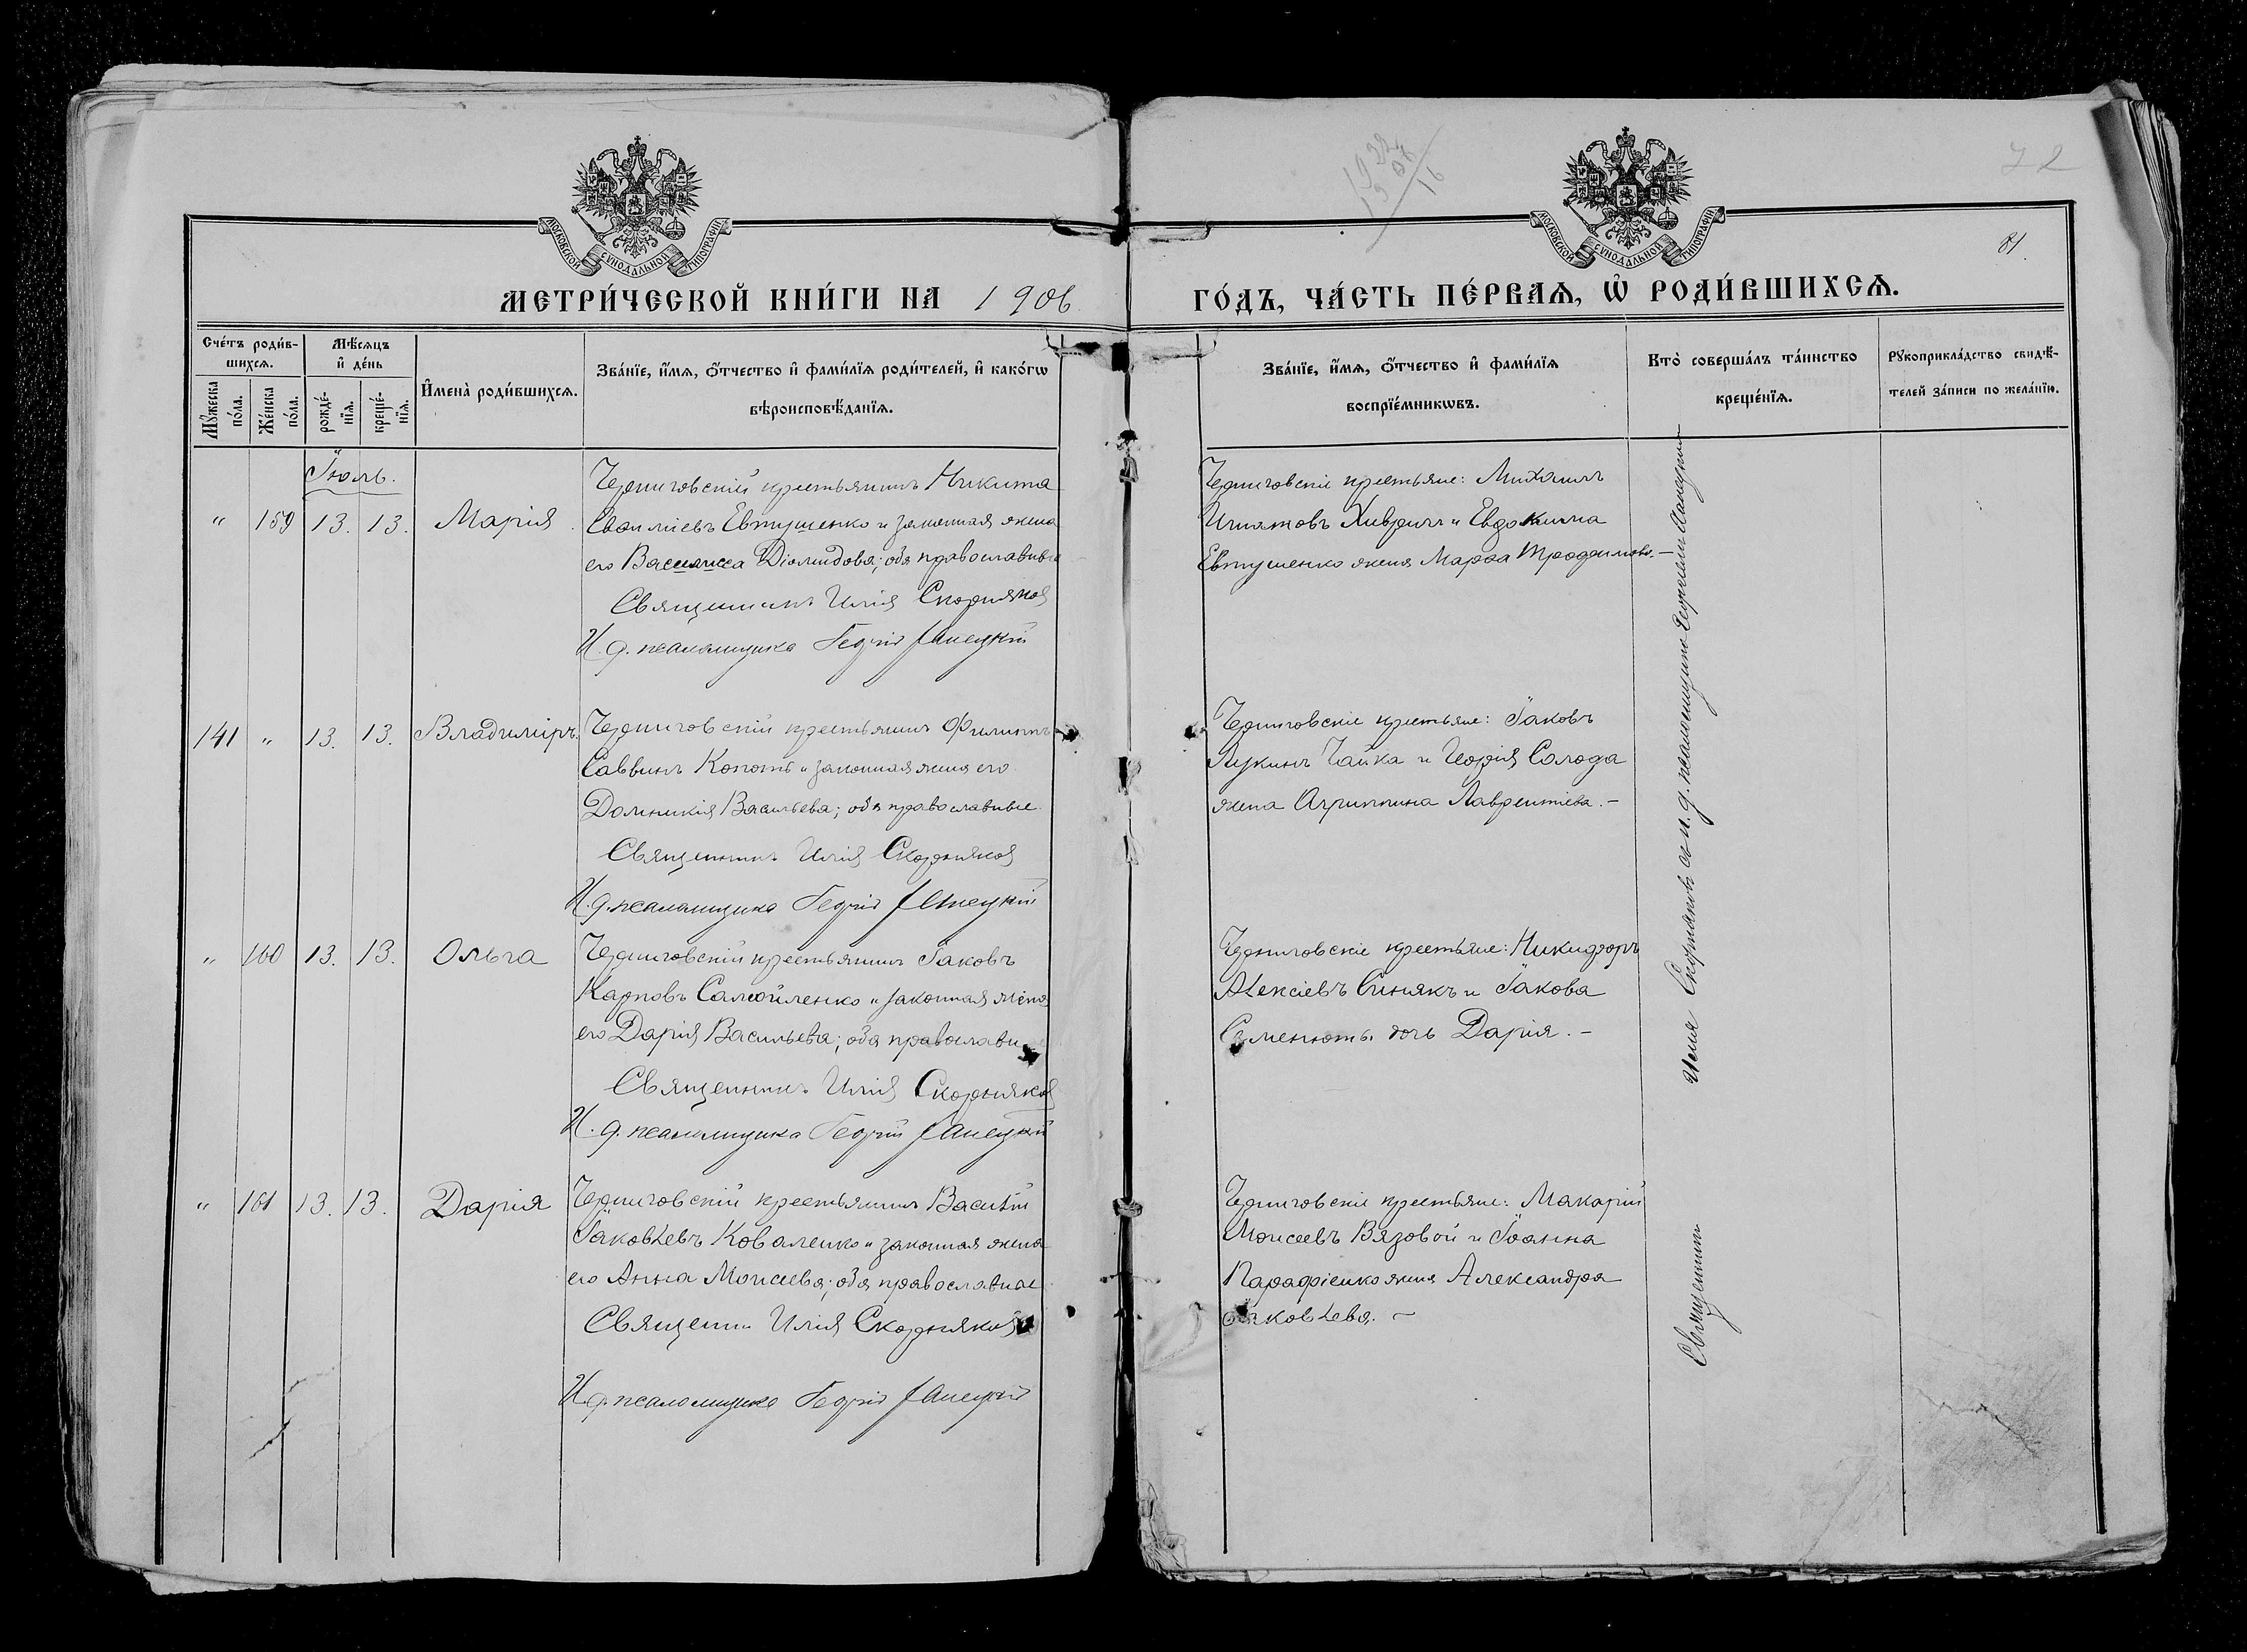 72
81.
МОСКОВСКОЙ СѴНОДАЛЬНОЙ ТИПОГРАФІИ
МОСКОВСКОЙ СѴНОДАЛЬНОЙ ТИПОГРАФІИ
МЕТРИ́ЧЕСКОЙ КНИ́ГИ НА 1906
ГО́ДЪ, ЧА́СТЬ ПЕ́РВАѦ, Ѡ҆ РОДИ́ВШИХСѦ.
Сче́тъ роди́в-
шихсѧ.
Мꙋ́жеска по́ла.
Же́нска по́ла.
Мѣ́сѧцъ
и҆ де́нь
рожде́-
нїѧ.
креще́-
нїѧ.
И҆мена̀ роди́вшихсѧ.
Зва́нїе, и҆́мѧ, ѻ҆́тчество и҆ фами́лїѧ роди́телей, и҆ како́гѡ
вѣроисповѣ́данїѧ.
Зва́нїе, и҆́мѧ, ѻ҆́тчество и҆ фами́лїѧ
воспрїе́мникѡвъ.
Кто̀ соверша́лъ та́инство
креще́нїѧ.
Рꙋкоприкла́дство свидѣ́-
телей за́писи по жела́нїю.
Іюль.
" 159 13. 13. Марія
Черниговскій крестьянинъ Никита
Евтушенко и законная жена
его Василисса Діомидова; оба православные
Священникъ Илія Скорняковъ
И. д. псаломщика Георгій
Черниговскіе крестьяне: Михаилъ
Игнатовъ и
Евтушенко жена Марфа Трофимова. —
141 " 13. 13. Владиміръ.
Черниговскій крестьянинъ Филиппъ
Саввинъ Копоть и законная жена его
Домникія Васильева; оба православные.
Священникъ Илія Скорняковъ
И. д. псаломщика Георгій
Черниговскіе крестьяне: Іаковъ
Лукинъ Чайка и Георгія Солода
жена Агриппина Лаврентіева. —
" 160 13. 13. Ольга
Черниговскій крестьянинъ Іаковъ
Карповъ Самойленко и законная жена
его Дарія Васильева; оба православн
Священникъ Илія Скорняковъ
И. д. псаломщика Георгій
Черниговскіе крестьяне: Никифоръ
Алексіевъ Синякъ и Іакова
дочь Дарія. —
" 161 13. 13. Дарія
Черниговскій крестьянинъ Василій
Іаковлевъ Коваленко и законная жена
его Анна Моисеева; оба православные
Священни Илія Скорняковъ
И. д. псаломщика Георгій
Черниговскіе крестьяне: Макарій
Моисеевъ Вязовой и Іоанна
Парафіенко жена Александра
Іаковлева. —
Священникъ Илія Скорняковъ съ и. д. псаломщика Георгіемъ